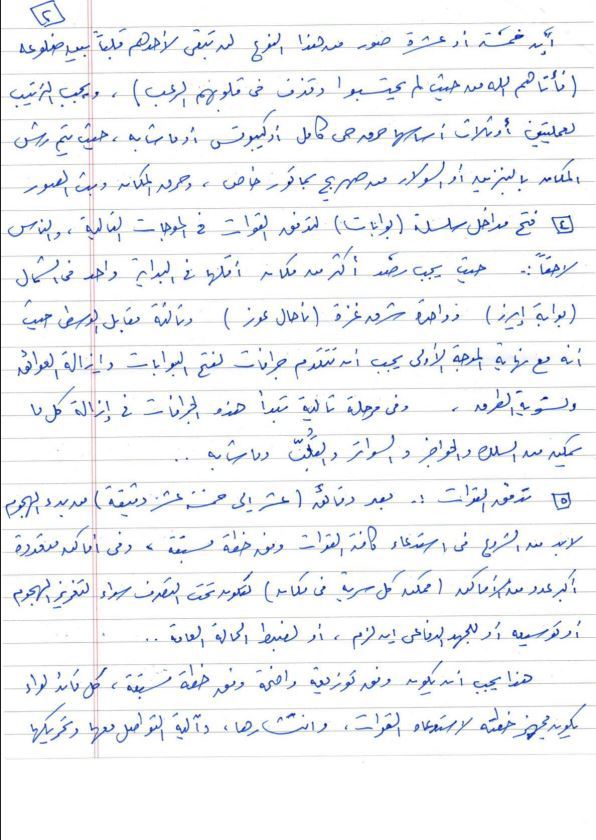 ٢
أيّد خمسة أو عشرة صور من هذا النوع لن تبقى لأحدهم قلباً بين ضلوعه
(فأتاهم الله من حيث لم يحتسبوا وقذف في قلوبهم الرعب)، ويجب الترتيب
لعمليتين أو ثلاث أساسها حرق حي كامل أو كيبوتس أو ما شابه، حيث يتم رش
المكان بالبنزين أو السولار من صهريج بماتور خاص، وحرق المكان وبث الصور
٤ فتح مداخل سلسلة (بوابات) لتدفق القوات في الموجات التالية، والناس
لاحقاً :. حيث يجب رصد أكثر من مكان أقلها في البداية واحد في الشمال
(بوابة إيرز) وواحدة شرق غزة (ناحال عوز) وثالثة مقابل الوسطى حيث
أنه مع نهاية الموجة الأولى يجب أن تتقدم جرافات لفتح البوابات وإزالة العوائق
وتسوية الطرق، وفي مرحلة تالية تبدأ هذه الجرافات في إزالة كل ما
يمكن من السلك والحواجز والسواتر وما شابه ..
٥ تدفق القوات :. بعد دقائق (عشر إلى خمسة عشر دقيقة) من بدء الهجوم
لابد من الشروع في استدعاء كافة القوات وفق خطة مسبقة، وفي أماكن متعددة
أكبر عدد من الأماكن (ممكن كل سرية في مكان) لتكون تحت التصرف سواء لتعزيز الهجوم
أو توسيعه أو للجهد الدفاعي إن لزم، أو لضبط الحالة العامة ..
هذا يجب أن يكون وفق توزيعة واضحة وفق خطة مسبقة، كل قائد لواء
يكون مجهز خطته لاستدعاء القوات، وانتشارها، وآلية التواصل معها وتحريكها